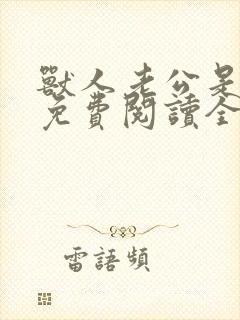 獸人老公是
免費閱讀全
雷語頻